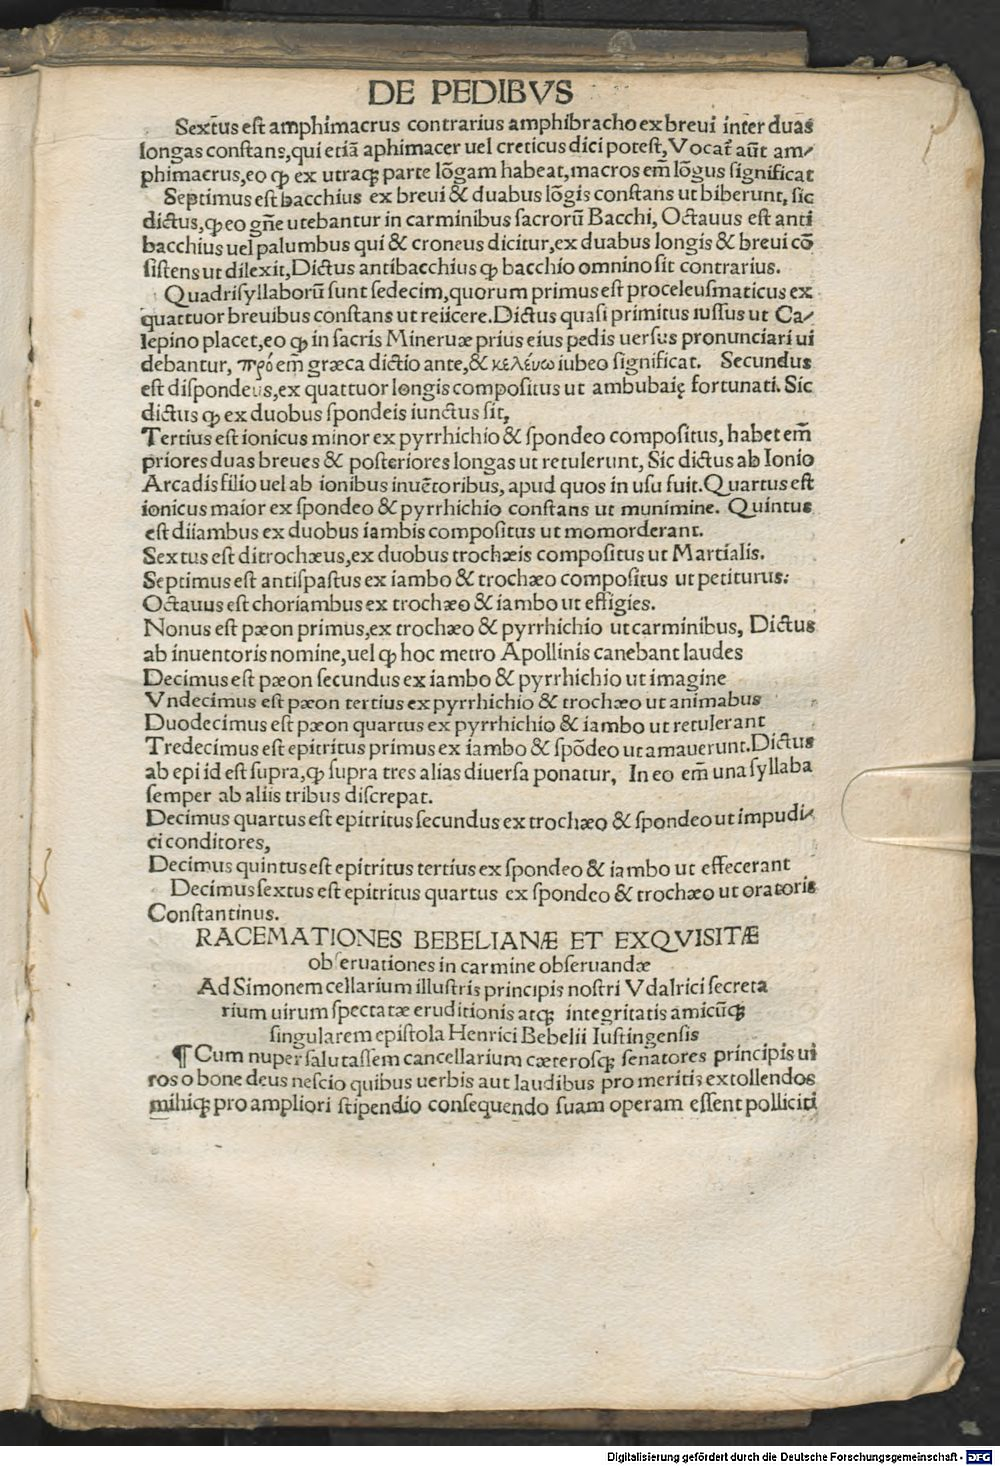 DE PEDIBVS
Sextus eſt amphimacrus contrarius amphibracho ex breui inter duas
longas conſtans,qui etiā aphimacer uel creticus dici poteſt,Vocat̄ aūt am⸗
phimacrus,eo ꝙ ex utraqꝫ parte lōgam habeat,macros em̄ lōgus ſignificat
Septimus eſt bacchius ex breui & duabus lōgis conſtans ut biberunt, ſic
dictus,ꝙ eo gn̄e utebantur in carminibus ſacrorū Bacchi, Octauus eſt anti
bacchius uel palumbus qui & croneus dicitur,ex duabus longis & breui cō
ſiſtens ut dilexit,Dictus antibacchius ꝙ bacchio omnino ſit contrarius.
Quadriſyllaborū ſunt ſedecim,quorum primus eſt proceleuſmaticus ex
quattuor breuibus conſtans ut reiicere.Dictus quaſi primitus iuſſus ut Ca⸗
lepino placet,eo ꝙ in ſacris Mineruæ prius eius pedis uerſus pronunciari ui
debantur, πρό em̄ græca dictio ante,& κελέυω iubeo ſignificat. Secundus
eſt diſpondeus,ex quattuor longis compoſitus ut ambubaię fortunati. Sic
dictus ꝙ ex duobus ſpondeis iunctus ſit,
Tertius eſt ionicus minor ex pyrrhichio & ſpondeo compoſitus, habet em̄
priores duas breues & poſteriores longas ut retulerunt, Sic dictus ab Ionio
Arcadis filio uel ab ionibus inuētoribus, apud quos in uſu fuit.Quartus eſt
ionicus maior ex ſpondeo & pyrrhichio conſtans ut munimine. Quintus
eſt diiambus ex duobus iambis compoſitus ut momorderant.
Sextus eſt ditrochæus,ex duobus trochæis compoſitus ut Martialis.
Septimus eſt antiſpaſtus ex iambo & trochæo compoſitus ut petiturus:
Octauus eſt choriambus ex trochæo & iambo ut effigies.
Nonus eſt pæon primus,ex trochæo & pyrrhichio ut carminibus, Dictus
ab inuentoris nomine,uel ꝙ hoc metro Apollinis canebant laudes
Decimus eſt pæon ſecundus ex iambo & pyrrhichio ut imagine
Vndecimus eſt pæon tertius ex pyrrhichio & trochæo ut animabus
Duodecimus eſt pæon quartus ex pyrrhichio & iambo ut retulerant
Tredecimus eſt epitritus primus ex iambo & ſpōdeo ut amauerunt.Dictus
ab epi id eſt ſupra,ꝙ ſupra tres alias diuerſa ponatur, In eo em̄ una ſyllaba
ſemper ab aliis tribus diſcrepat.
Decimus quartus eſt epitritus ſecundus ex trochæo & ſpondeo ut impudi⸗
ci conditores,
Decimus quintus eſt epitritus tertius ex ſpondeo & iambo ut effecerant
Decimus ſextus eſt epitritus quartus ex ſpondeo & trochæo ut oratoris
Conſtantinus.
RACEMATIONES BEBELIANÆ ET EXQVISITÆ
obſeruationes in carmine obſeruandæ
Ad Simonem cellarium illuſtris principis noſtri Vdalrici ſecreta
rium uirum ſpectatæ eruditionis atqꝫ integritatis amicūqꝫ
ſingularem epiſtola Henrici Bebelii Iuſtingenſis
¶ Cum nuper ſalutaſſem cancellarium cæteroſqꝫ ſenatores principis ui
ros o bone deus neſcio quibus uerbis aut laudibus pro meritis extollendos
mihiqꝫ pro ampliori ſtipendio conſequendo ſuam operam eſſent polliciti
Digitalisierung gefördert durch die Deutsche Forschungsgemeinschaft - DFG